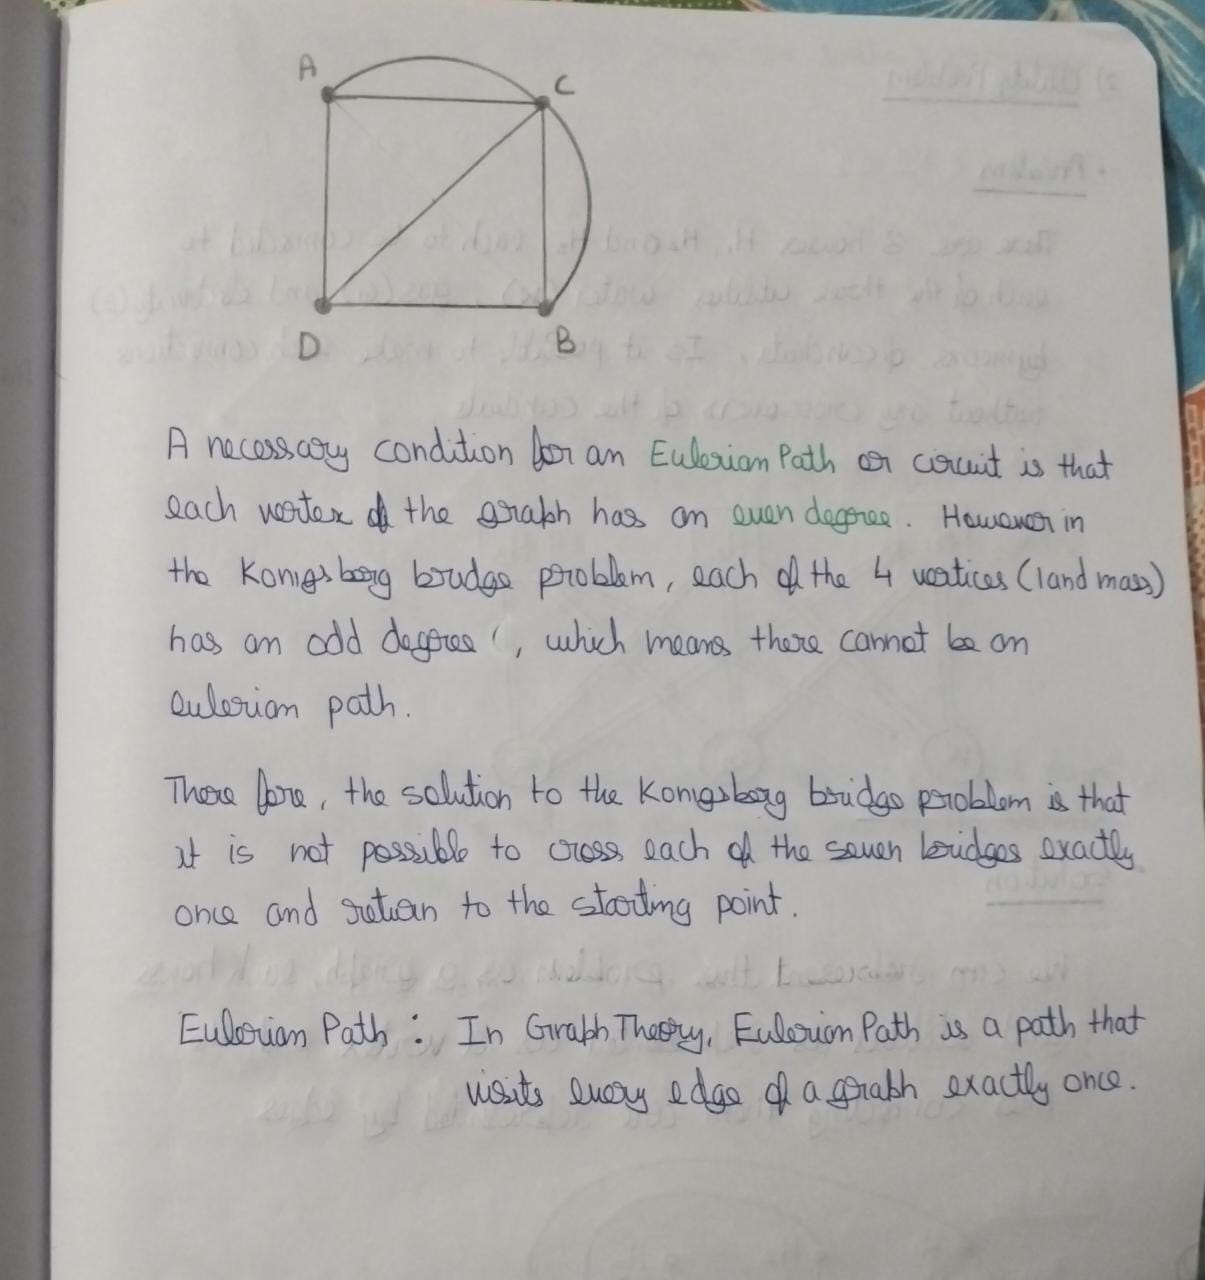 A
C
D
B
A necessary condition for an Eulerian Path or circuit is that
each vertex of the graph has an even degree. However in
the Konigsberg bridge problem, each of the 4 vertices (land mass)
has an odd degree , which means there cannot be an
eulerian path.
There fore, the solution to the Konigsberg bridge problem is that
it is not possible to cross each of the seven bridges exactly
once and return to the starting point.
Eulerian Path : In Graph Theory, Eulerian Path is a path that
visits every edge of a graph exactly once.